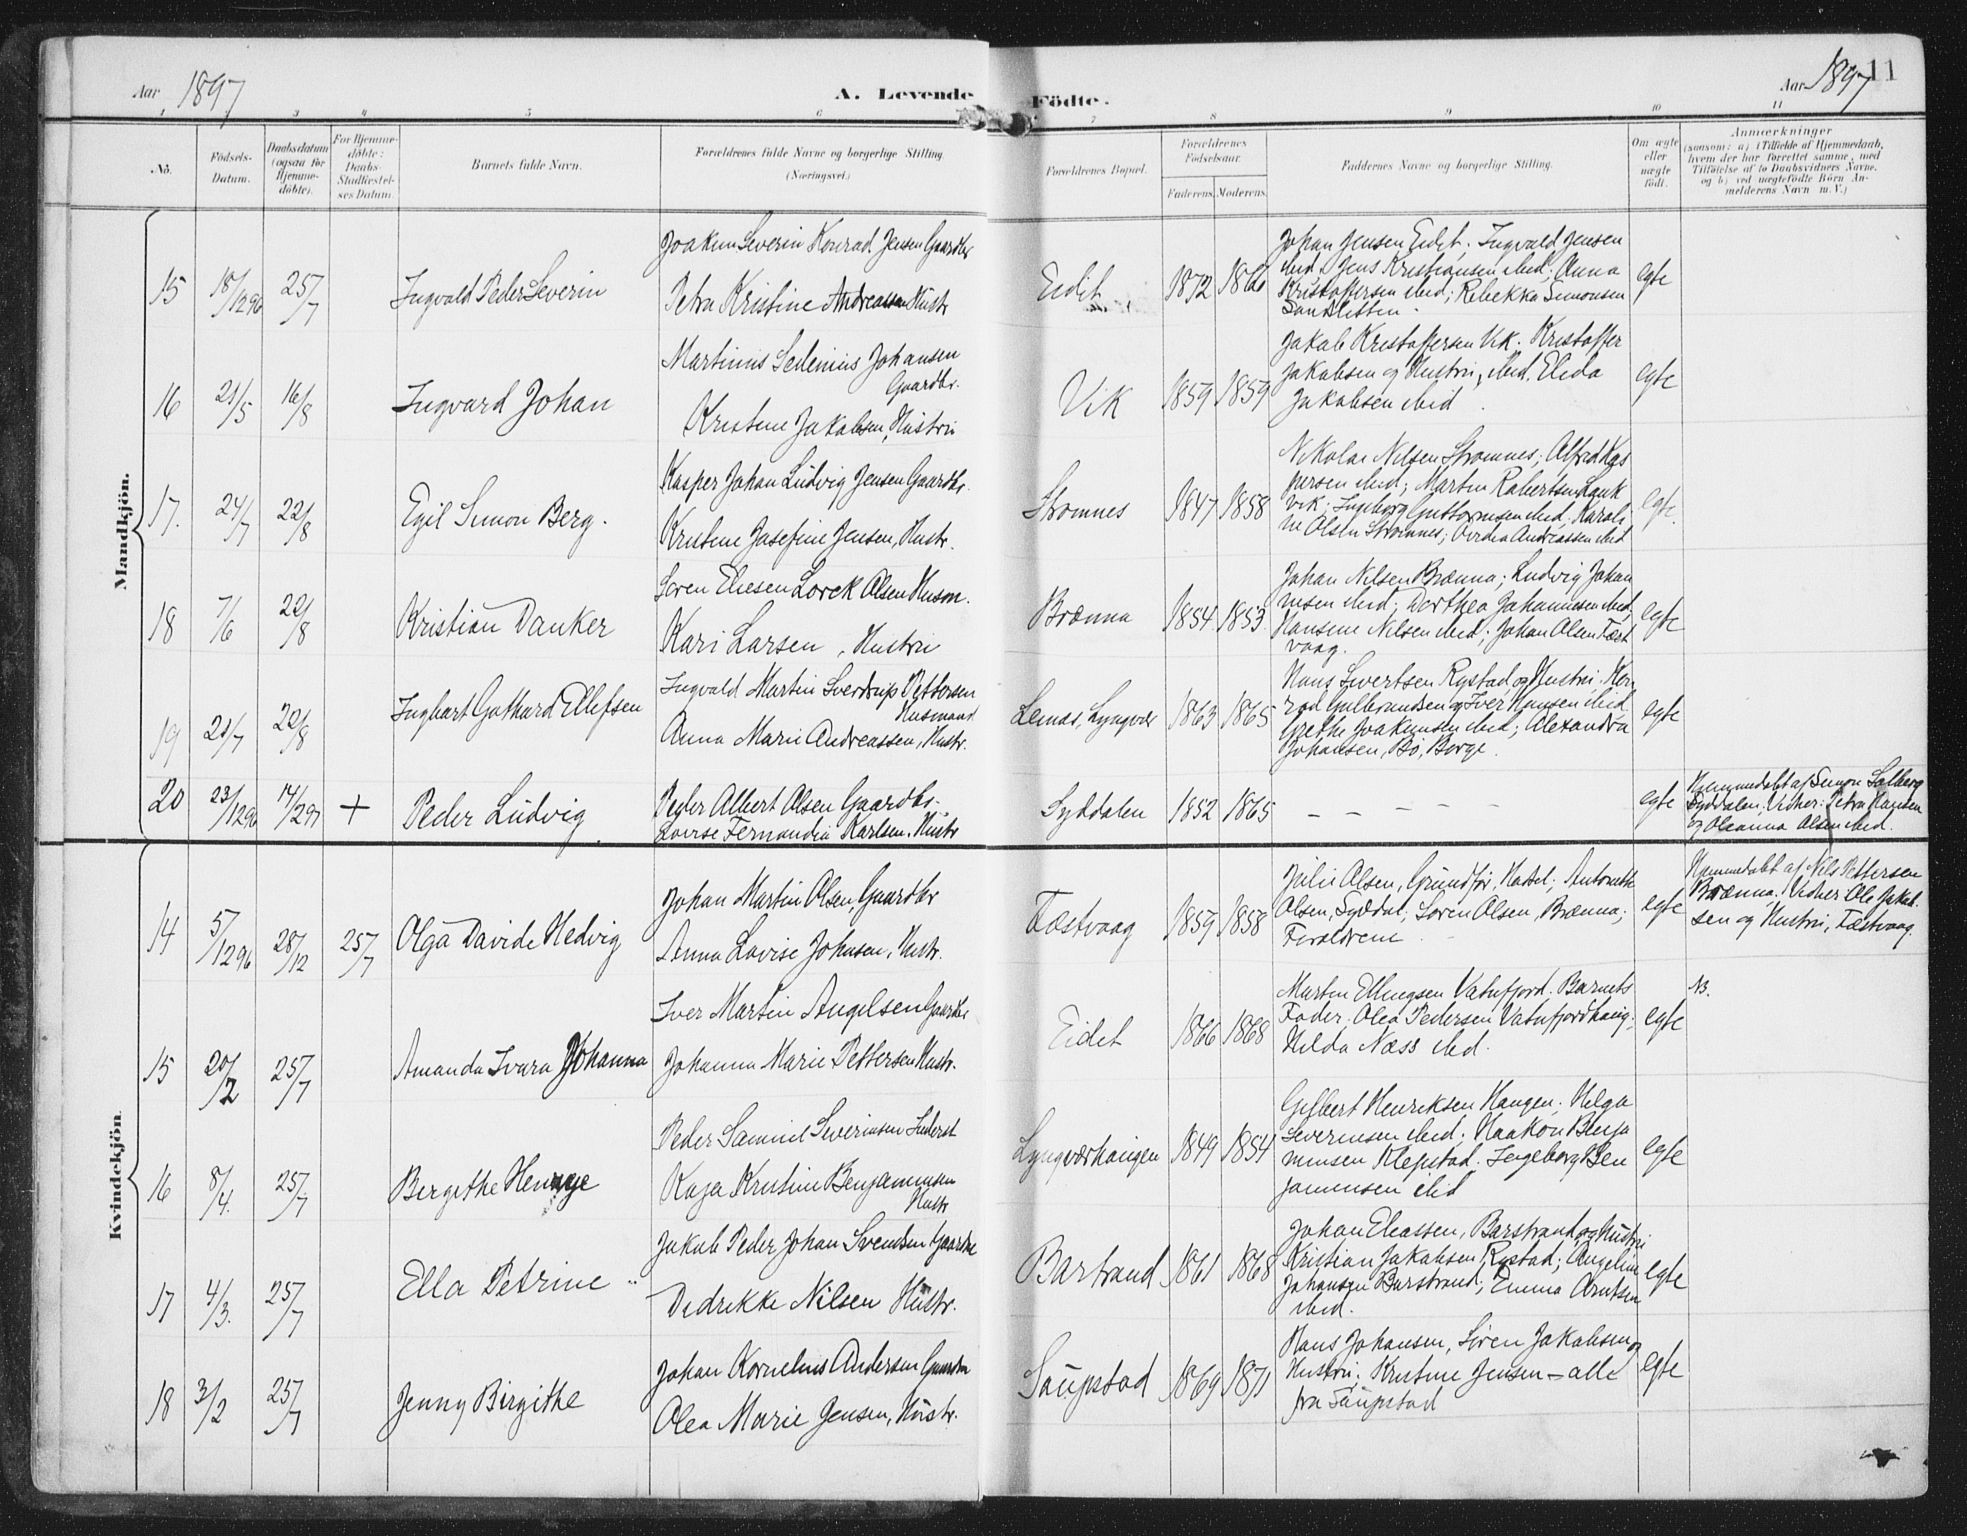 Aar 1897
A. Levende Födte.
Aar 1897 11
1 3 4 5 6 7 8 9 10 11
No.
Födsels-Datum.
Daabsdatum (ogsaa for Hjemme-döbte).
For Hjemme-döbte: Daabs-Stadfæstel-ses Datum.
Barnets fulde Navn.
Forældrenes fulde Navne og borgerlige Stilling (Næringsvei.)
Forældrenes Bopæl.
Forældrenes Födselsaar.
Faderens. Moderens.
Faddernes Navne og borgerlig Stilling.
Om ægte eller uægte födt.
Anmærkninger
(saasom: a) i Tilfælde af Hjemmedaab,
hvem der har forrettet samme, med
Tilföielse af to Daabsvidners Navne,
og b) ved uægtefödte Börn An-
melderens Navn m. V.)
Mandkjön.
15 18/12 96 25/7 Ingvald Peder Severin
Joakim Severin Konrad Jensen Gaardbr
Petra Kristine Andreassen Hustr
Eidet 1872 1866
Johan Jensen Eidet. Ingvald Jensen
ibid, Jens Kristiansen ibid; Anna
Kristoffersen ibid; Rebekka Simonsen
Sandsletten.
egte
16 21/5 16/8 Ingvard Johan
Martinus Sedenius Johansen
Gaardbr.
Kristine Jakobsen, Hustru
Vik 1859 1859
Jakob Kristoffersen Vik. Kristoffer
Jakobsen og Hustru, ibid. Elida
Jakobsen ibid.
egte
17. 24/7 22/8 Egil Simon Berg.
Kasper Johan Ludvig Jensen Gaardbr.
Kristine Josefine Jensen, Hustr.
Stromnes 1847 1858
Nikolai Nilsen Stromnes; Alfred Kas
persen ibid; Martin Robertsen Lauk
vik; Ingeborg Guttormsen ibid; Karoli
ne Olsen Stromnes; Andreassen ibid
egte.
18 7/6 22/8 Kristian Danker
Soren Eliesen Lorck Olsen Husm.
Kari Larsen, Hustru
Brænna 1854 1853
Johan Nilsen Brænna; Ludvig Johan
nesen ibid; Dorthea Johannesen ibid,
Hansine Nilsen ibid; Johan Olsen Fæst
vaag.
egte
19 21/7 22/8 Ingbart Gothard Ellefsen
Ingvald Martin Sverdrup Pettersen
Husmand
Anna Marie Andreassen, Hustr.
Lemas, Lyngvær 1863 1865
Hans Sivertsen Rystad og Hustru. Kon
rad Gulbrandsen og Iver Hansen ibid
Grethe Joakimsen ibid; Alexandra
Johansen, Bö, Borge.
egte
20 23/12 96 14/2 97 + Peder Ludvig
Peder Albert Olsen Gaardbr.
Lovise Fernandia Karlsen. Hustr
Syddalen 1852 1865 – – – – –
egte
Hjemmedøbt af Simon Solberg
Syddalen. Vidner: Petra Hansen
og Oleanna Olsen ibid.
Kvindekjön.
14 5/12 96 28/12 25/7 Olga Davide Hedvig
Johan Martin Olsen, Gaardbr
Anna Lovise Johnsen, Hustr.
Fæstvaag 1859 1858
Julie Olsen, Grundfør, Hadsel; Antonette
Olsen, Syddal; Soren Olsen, Brænna;
Foreldrene
egte
Hjemmedøbt af Nils Pettersen
Brænna. Vidner Ole Jakob
sen og Hustru, Fæstvaag.
15 20/2 25/7 Amanda Ivara Johanna
Iver Martin Angelsen Gaardbr
Johanna Marie Pettersen Hustr.
Eidet 1866 1868
Martin Ellingsen Vatnfjord. Barnets
Fader. Olea Pedersen Vatnfjordhaug;
Hilda Næss ibid.
egte
NB.
16 8/4. 25/7 Bergithe Henrye
Peder Samuel Severinsen Inderst
Kaja Kristine Benjaminsen
Hustr
Lyngværhaugen 1849 1854
Gilbert Henriksen Haugen; Helga
Severinsen ibid; Haakon Benja
minsen Klepstad. Ingeborg Ben
jaminsen ibid
egte
17 4/3. 25/7 Ella Petrine
Jakob Peder Johan Svendsen Gaardbr
Didrikke Nilsen Hustr.
Barstrand 1861 1868
Johan Eliassen, Barstrand og Hustru
Kristian Jakobsen Rystad; Angeline
Johansen Barstrand; Emma Arntsen
ibid.
egte
18 3/2 25/7 Jenny Birgithe
Johan Kornelius Andersen Gaardbr
Olea Marie Jensen, Hustr.
Saupstad 1869 1871
Hans Johansen, Sören Jakobsen og
Hustru; Kristine Jensen – alle
fra Saupstad
egte